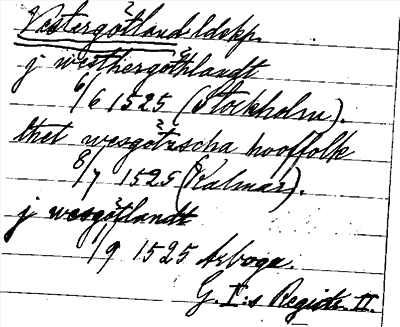 Västergötland ldskp.
j westhergöthlandt
6/6 1525 (Stockholm).
thet wesgötzscha hooffolk
8/7 1525 (Kalmar).
j wesgötlandt
1/9 1525 Arboga.
G. I:s Registr. II.